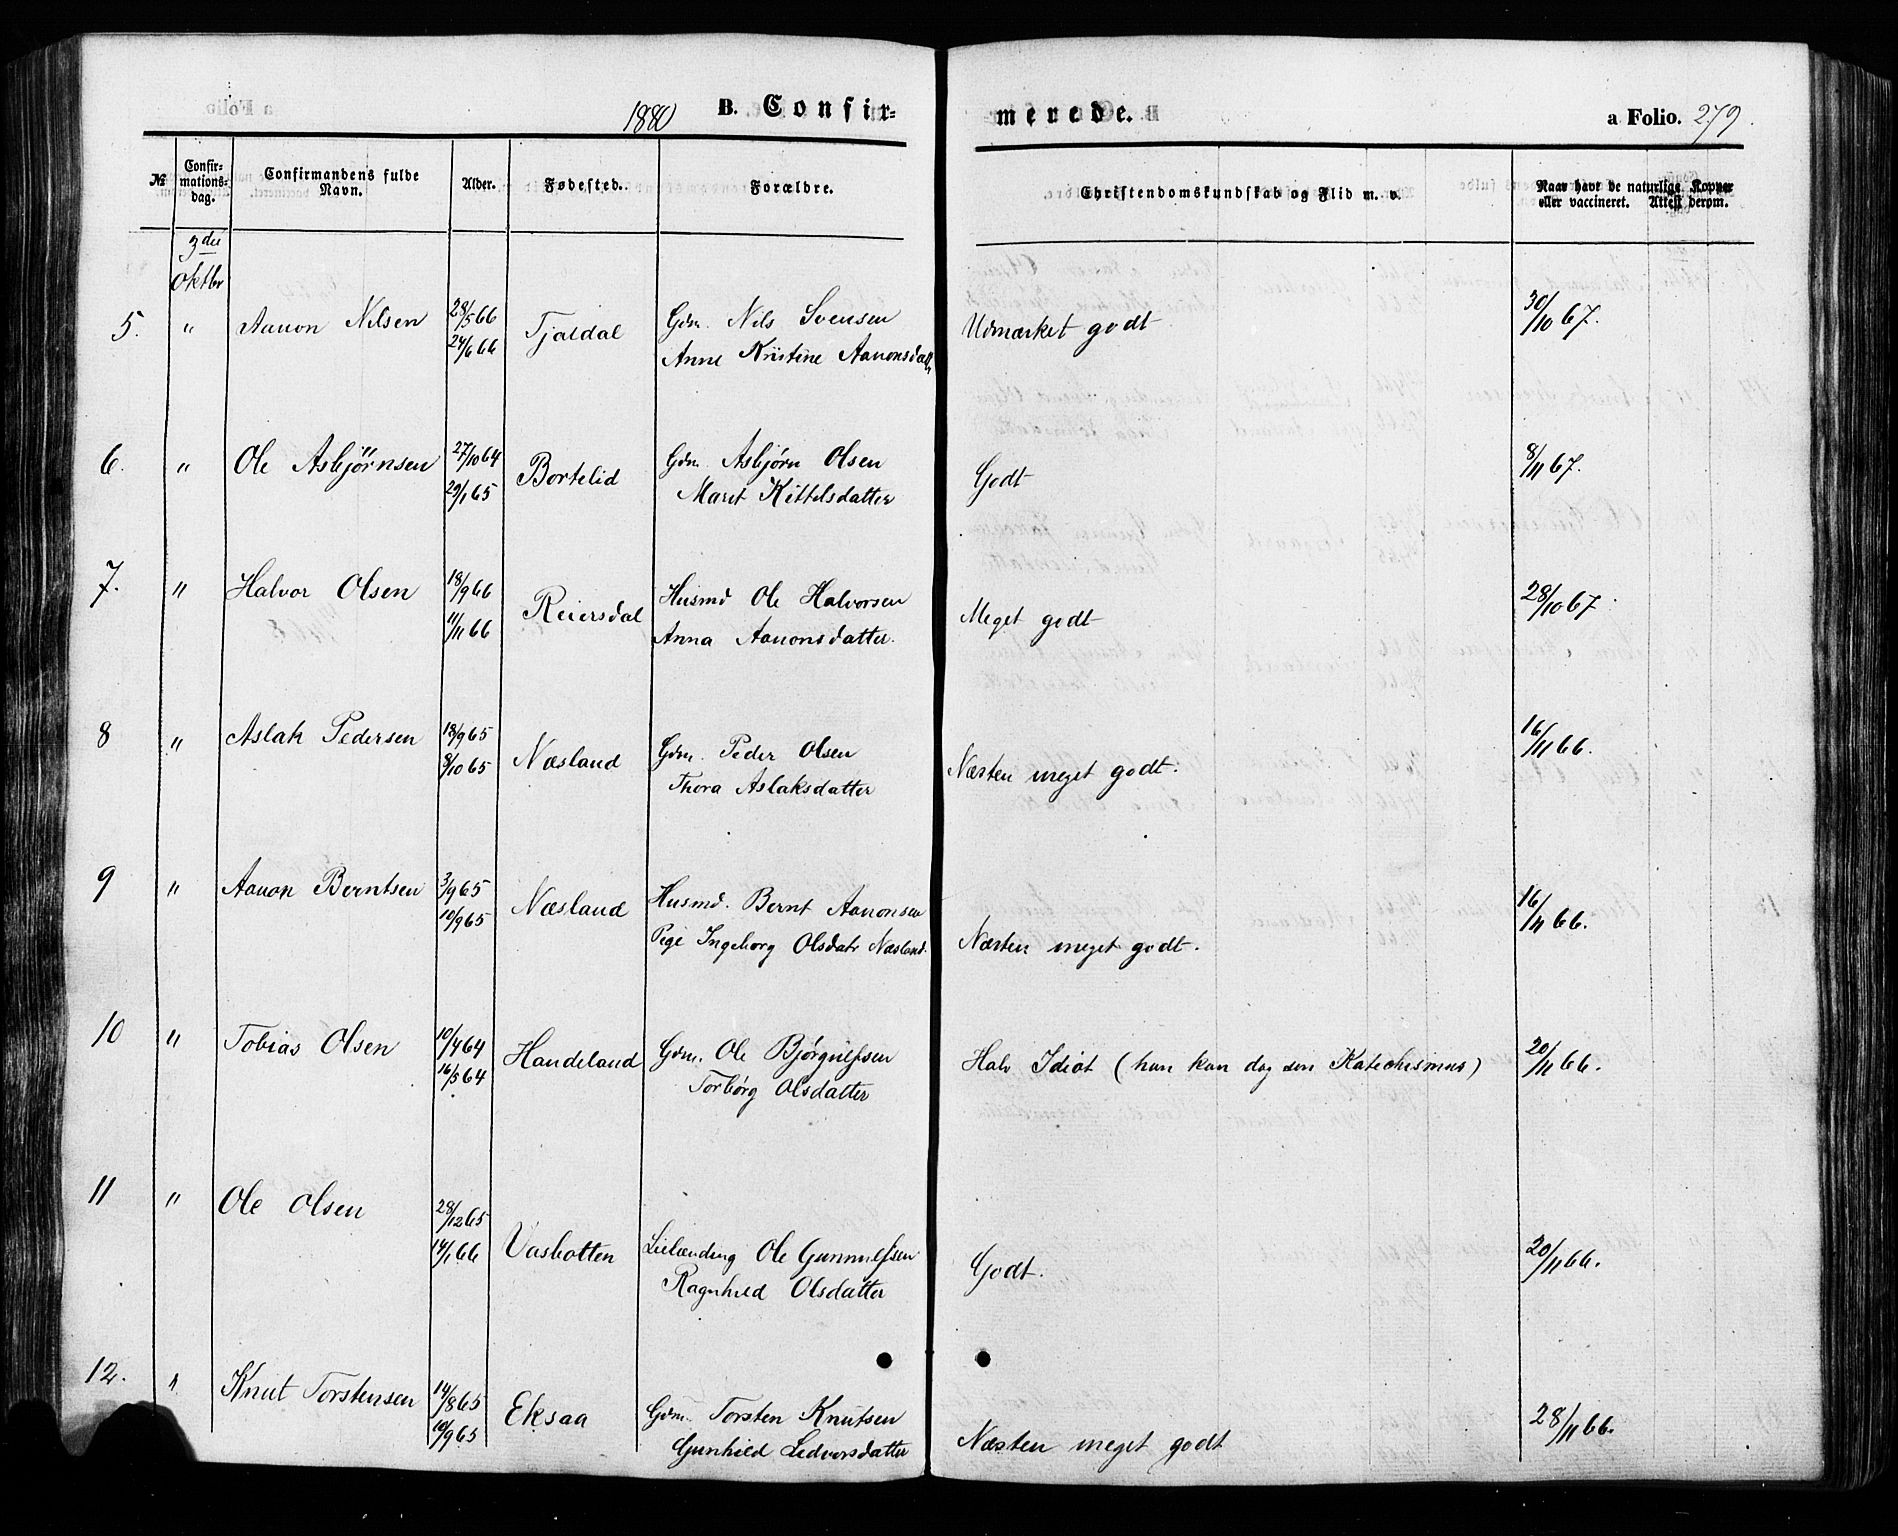 1880 B. Confir- merede. a Folio. 279.
№ Confir-mations-dag. Confirmandens fulde Navn. Alder. Fødested. Forældre. Christendomskundskab og Flid m. v. Naar havt de naturlige Kopper eller vaccineret. Attest derom.
3die
Oktbr
5. " Aanon Nilsen 28/5 66 Tjaldal Gdm. Nils Svensen Udmærket godt 30/10 67.
24/6 66 Anne Kristine Aanonsdatter
6. " Ole Asbjørnsen 27/10 64 Bortelid Gdm. Asbjørn Olsen Godt 8/11 67.
29/1 65 Maret Kittelsdatter
7. " Halvor Olsen 18/9 66 Reiersdal Husmd Ole Halvorsen Meget godt 28/10 67
11/11 66 Anna Aanonsdatter.
8 " Aslak Pedersen 18/9 65 Næsland Gdm. Peder Olsen Næsten meget godt. 16/11 66.
8/10 65 Thora Aslaksdatter
9 " Aanon Berntsen 3/9 65 Næsland Husmd. Bernt Aanonsen Næsten meget godt. 16/11 66.
10/9 65 Pige Ingeborg Olsdatr Næsland.
10 " Tobias Olsen 10/4 64 Handeland Gdm. Ole Bjørgulfsen Halv Idiot (han kan dog sin Katechismus) 20/11 66.
16/5 64 Torbørg Olsdatter
11 " Ole Olsen 28/12 65 Vasbotten Leilænding Ole Gunnulfsen Godt. 20/11 66.
14/1 66 Ragnhild Olsdatter
12. " Knut Torstensen 14/8 65 Eksaa Gdm. Torsten Knutsen Næsten meget godt 28/11 66.
10/9 65 Gunhild Ledvorsdatter